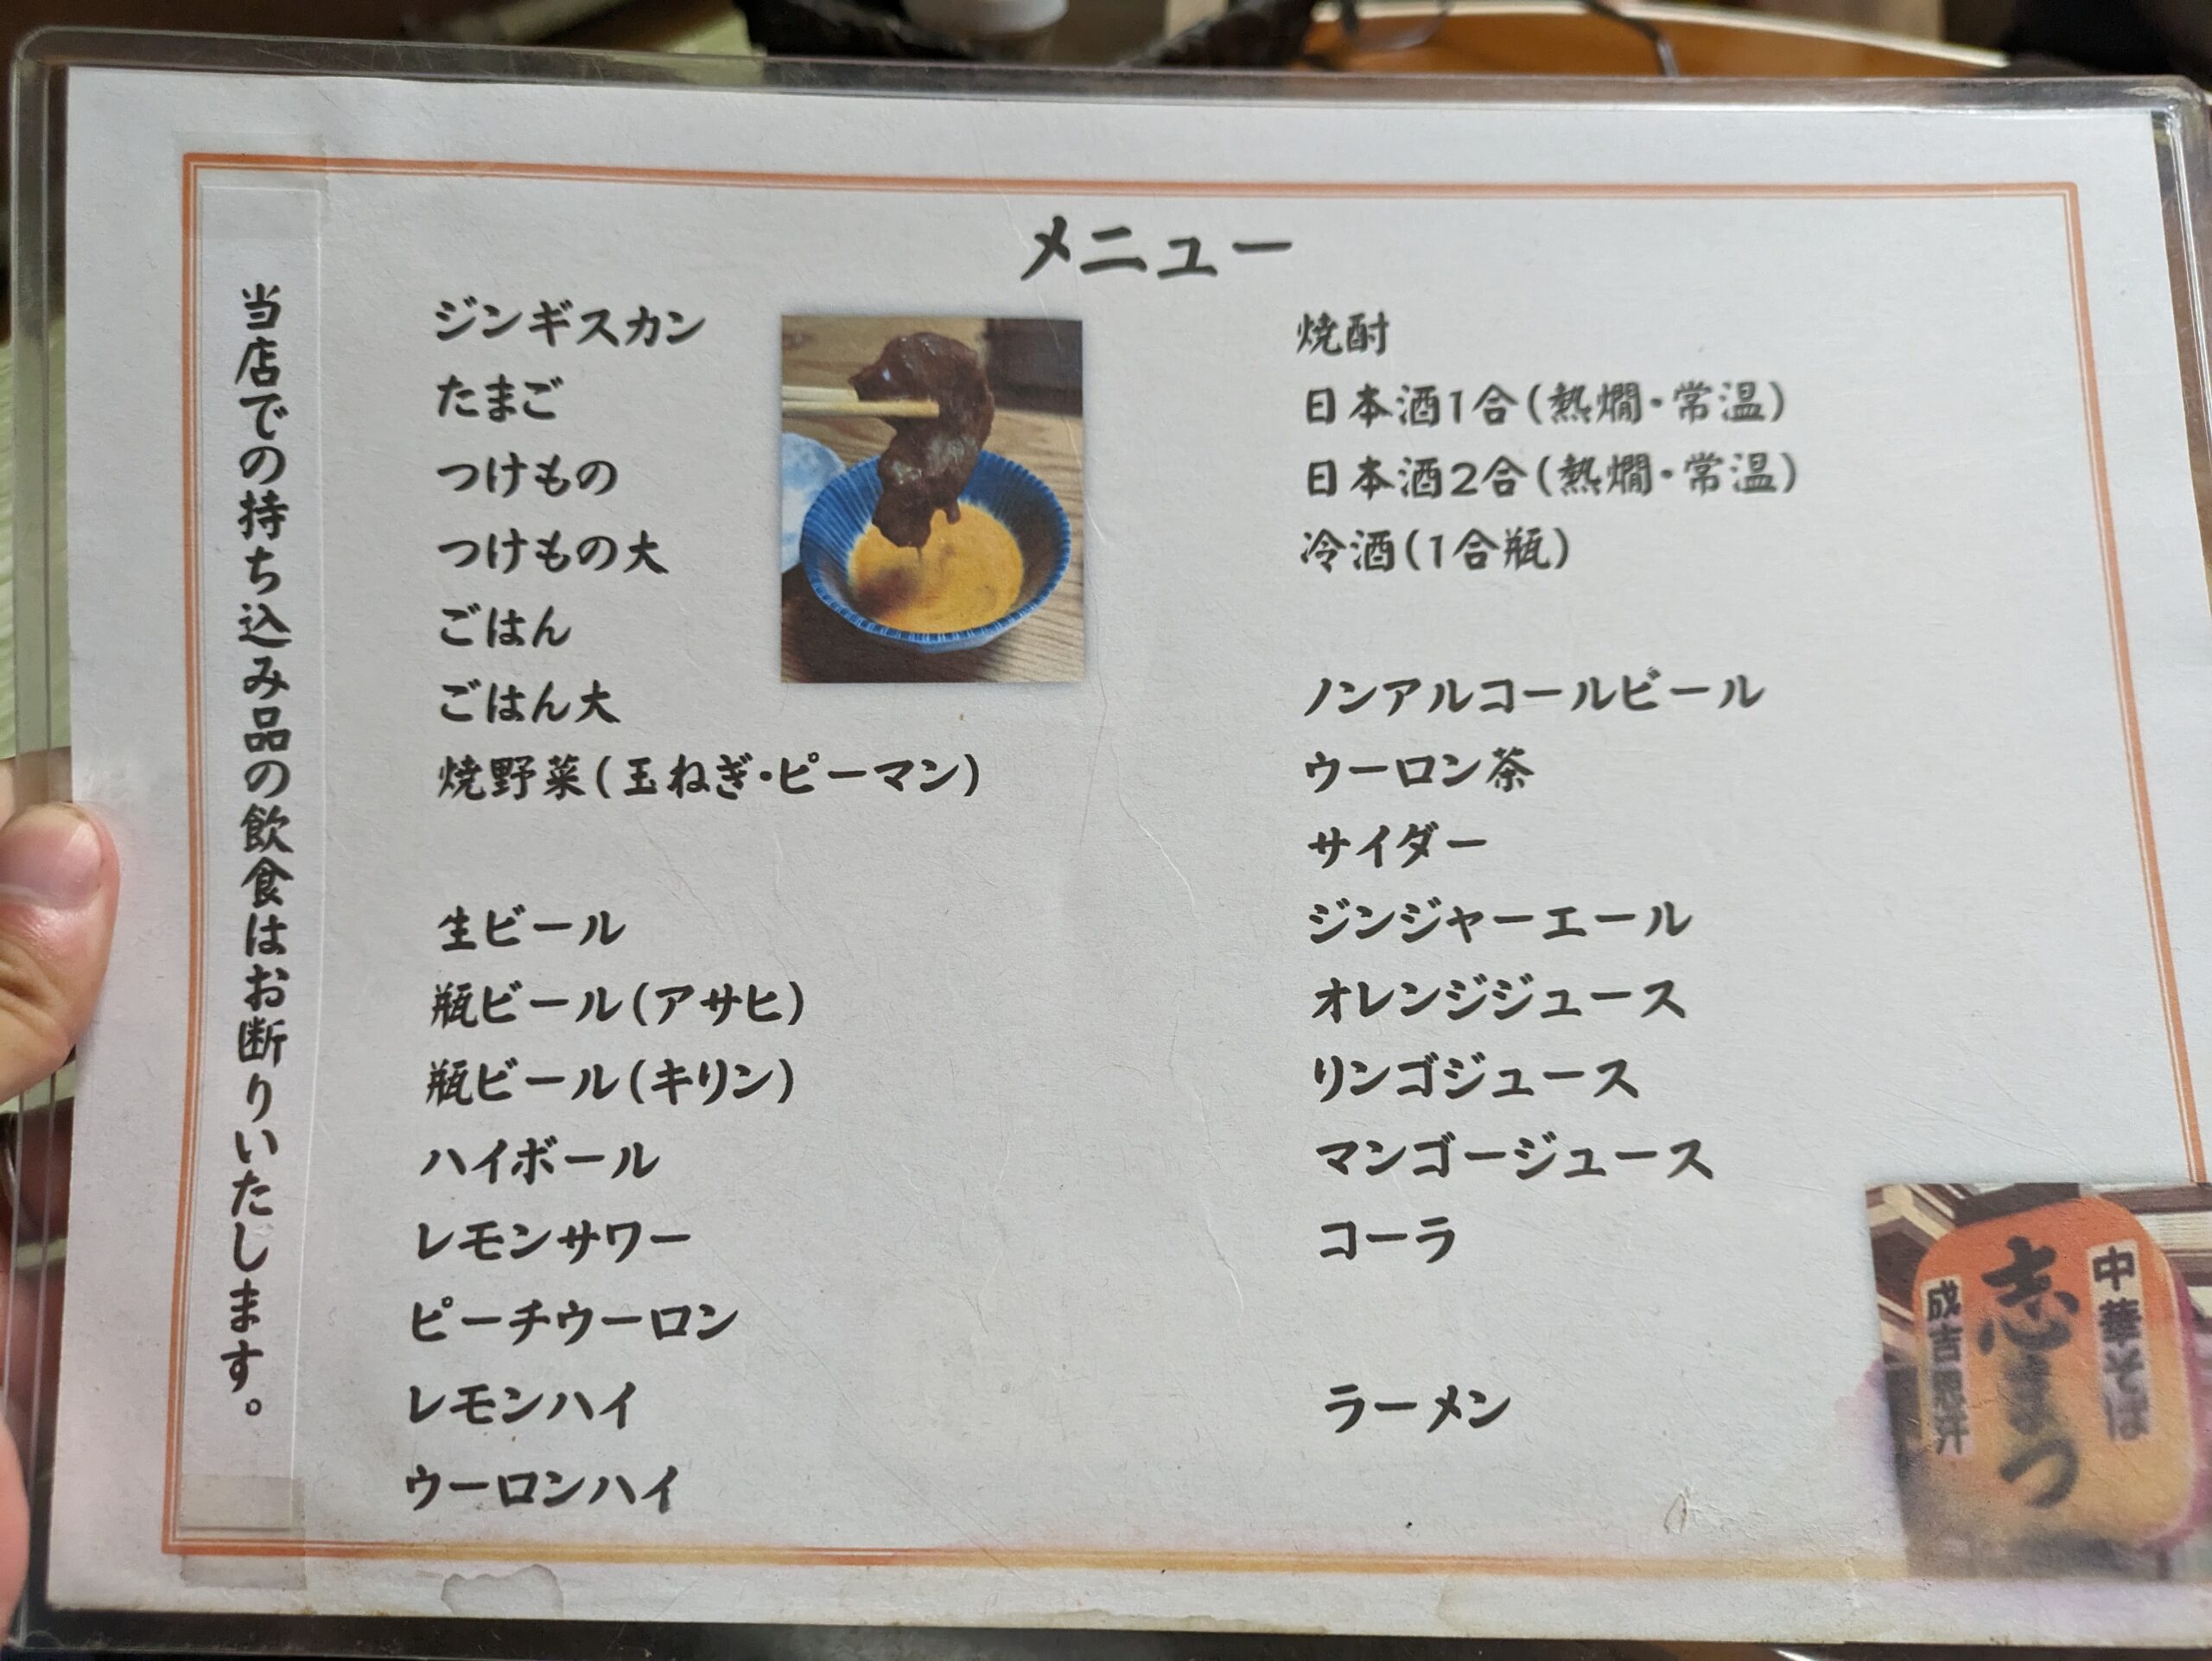 メニュー
当店での持ち込み品の飲食はお断りいたします。
ジンギスカン
たまご
つけもの
つけもの大
ごはん
ごはん大
焼野菜(玉ねぎ・ピーマン)
生ビール
瓶ビール(アサヒ)
瓶ビール(キリン)
ハイボール
レモンサワー
ピーチウーロン
レモンハイ
ウーロンハイ
焼酎
日本酒1合(熱燗・常温)
日本酒2合(熱燗・常温)
冷酒(1合瓶)
ノンアルコールビール
ウーロン茶
サイダー
ジンジャーエール
オレンジジュース
リンゴジュース
マンゴージュース
コーラ
ラーメン
中華そば
志まつ
成吉思汗